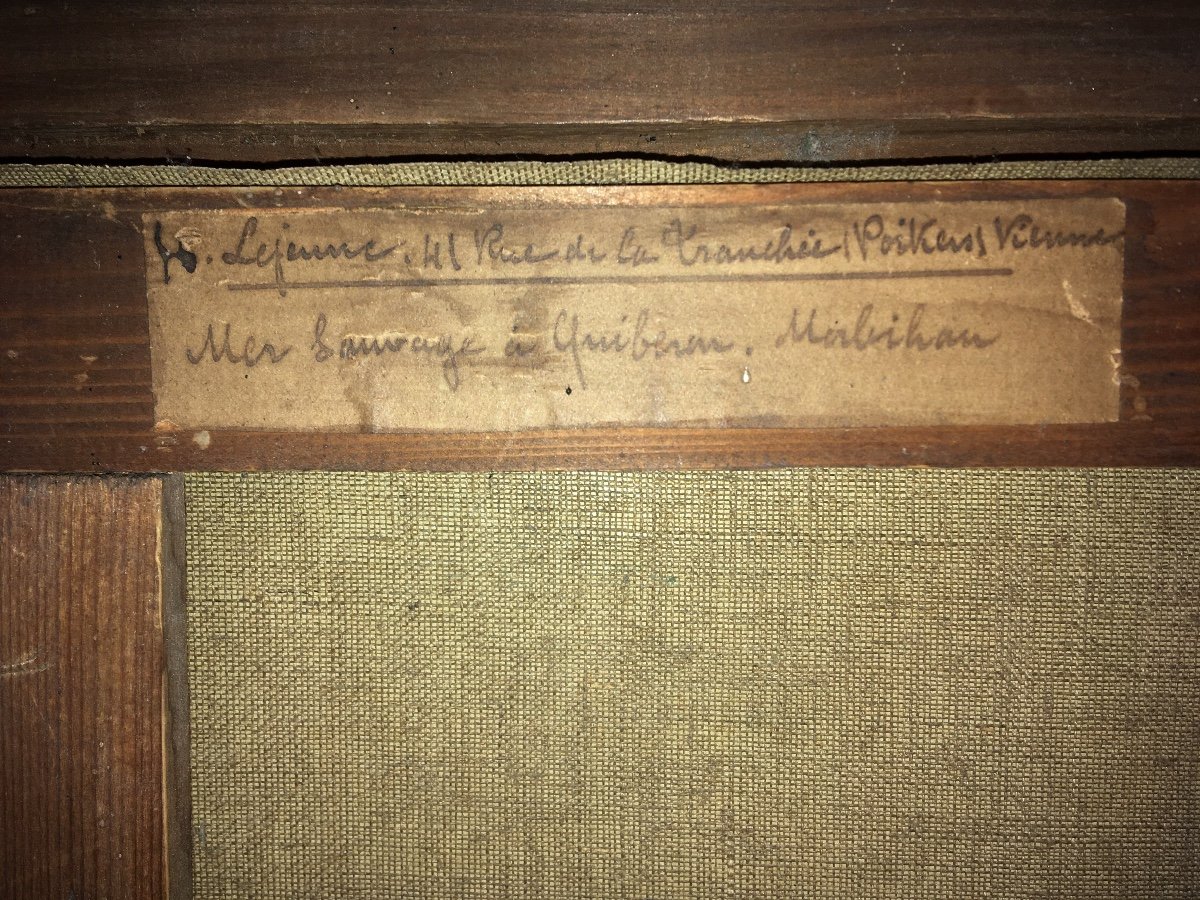 . Lejeune. 41 Rue de la Tranchée (Poitiers) Vienne
Mer Sauvage à Quiberon. Morbihan